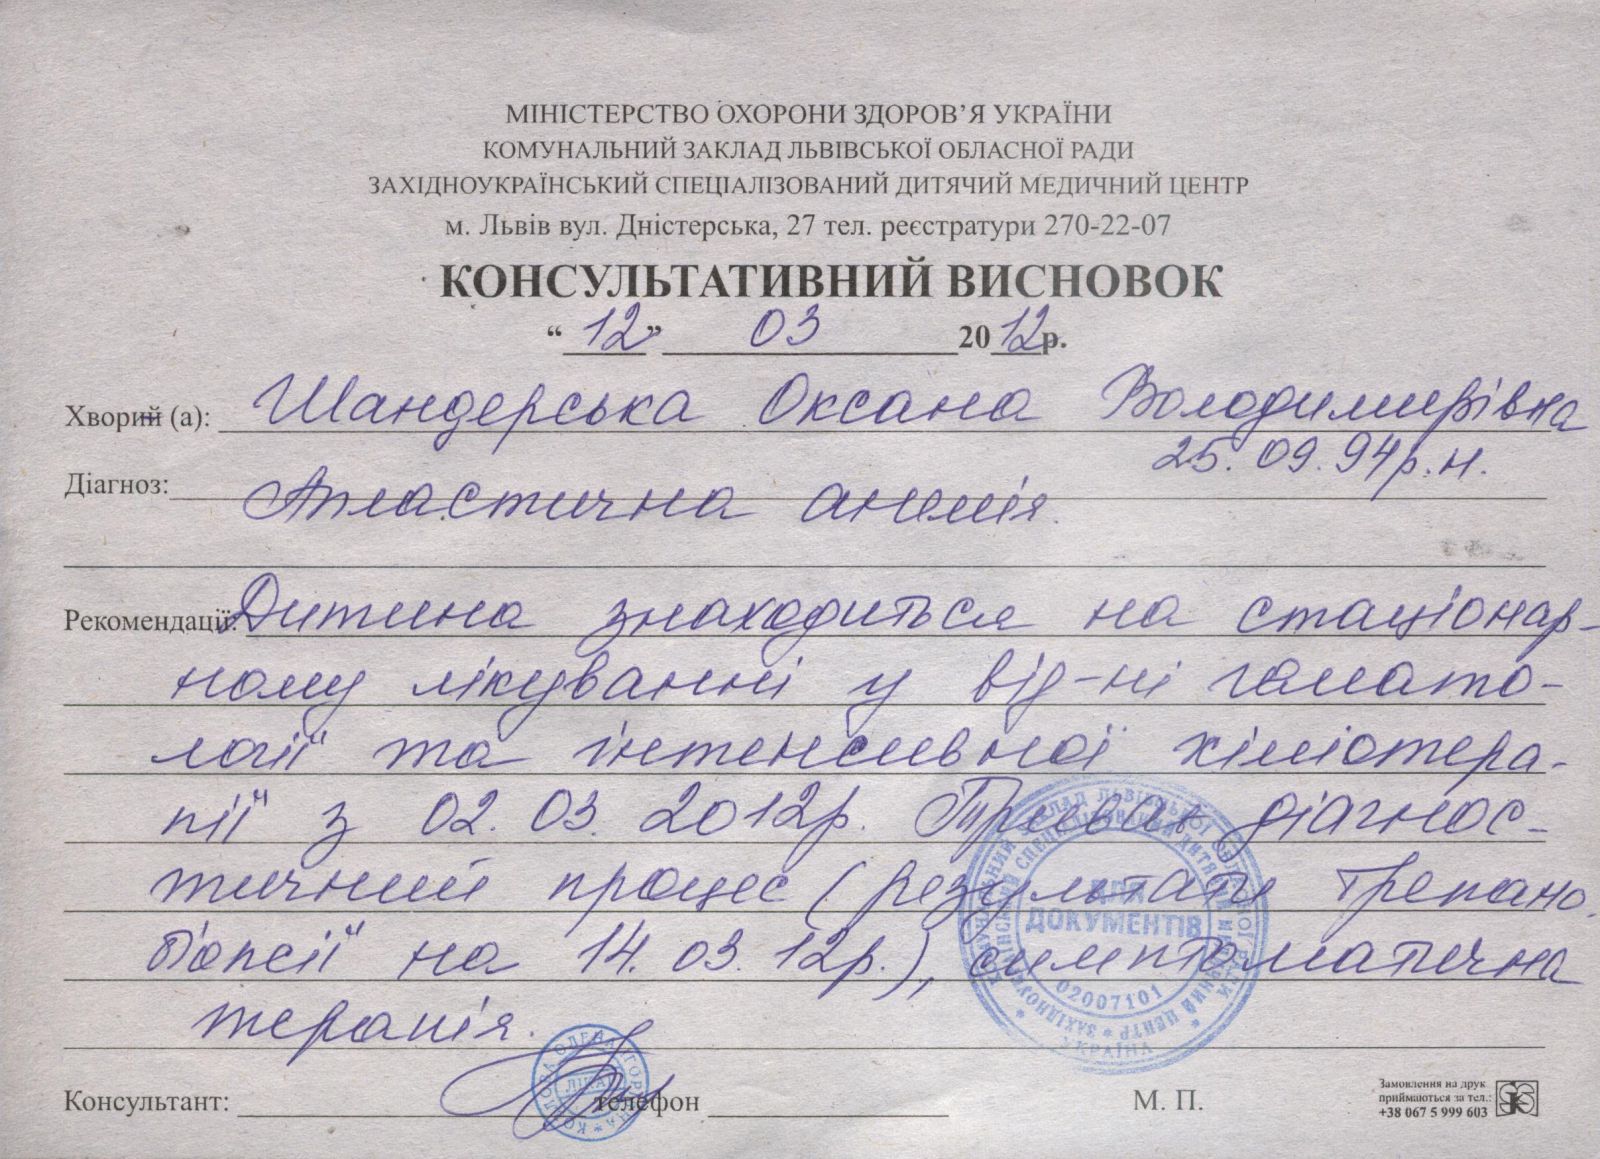 МІНІСТЕРСТВО ОХОРОНИ ЗДОРОВ’Я УКРАЇНИ
КОМУНАЛЬНИЙ ЗАКЛАД ЛЬВІВСЬКОЇ ОБЛАСНОЇ РАДИ
ЗАХІДНОУКРАЇНСЬКИЙ СПЕЦІАЛІЗОВАНИЙ ДИТЯЧИЙ МЕДИЧНИЙ ЦЕНТР
м. Львів вул. Дністерська, 27 тел. реєстратури 270-22-07
КОНСУЛЬТАТИВНИЙ ВИСНОВОК
“12” 03 2012р.
Хворий (а): Шандерська Оксана Володимирівна
25.09.94р.н.
Діагноз: Апластична анемія.
Рекомендації: Дитина знаходиться на стаціонар-
ному лікуванні у від-ні гемато-
логії та інтенсивної хіміотера-
пії з 02.03.2012р. Триває діагнос-
тичний процес (результати трепано
біопсії на 14.03.12р.), симптоматична
терапія.
КОМУНАЛЬНИЙ ЗАКЛАД ЛЬВІВСЬКОЇ ОБЛАСНОЇ РАДИ
ЗАХІДНОУКРАЇНСЬКИЙ СПЕЦІАЛІЗОВАНИЙ ДИТЯЧИЙ МЕДИЧНИЙ ЦЕНТР
ДЛЯ
ДОКУМЕНТІВ
02007101
УКРАЇНА
ЛІКАР
Консультант: телефон М. П.
Замовлення на друк
приймаються за тел.:
+38 067 5 999 603